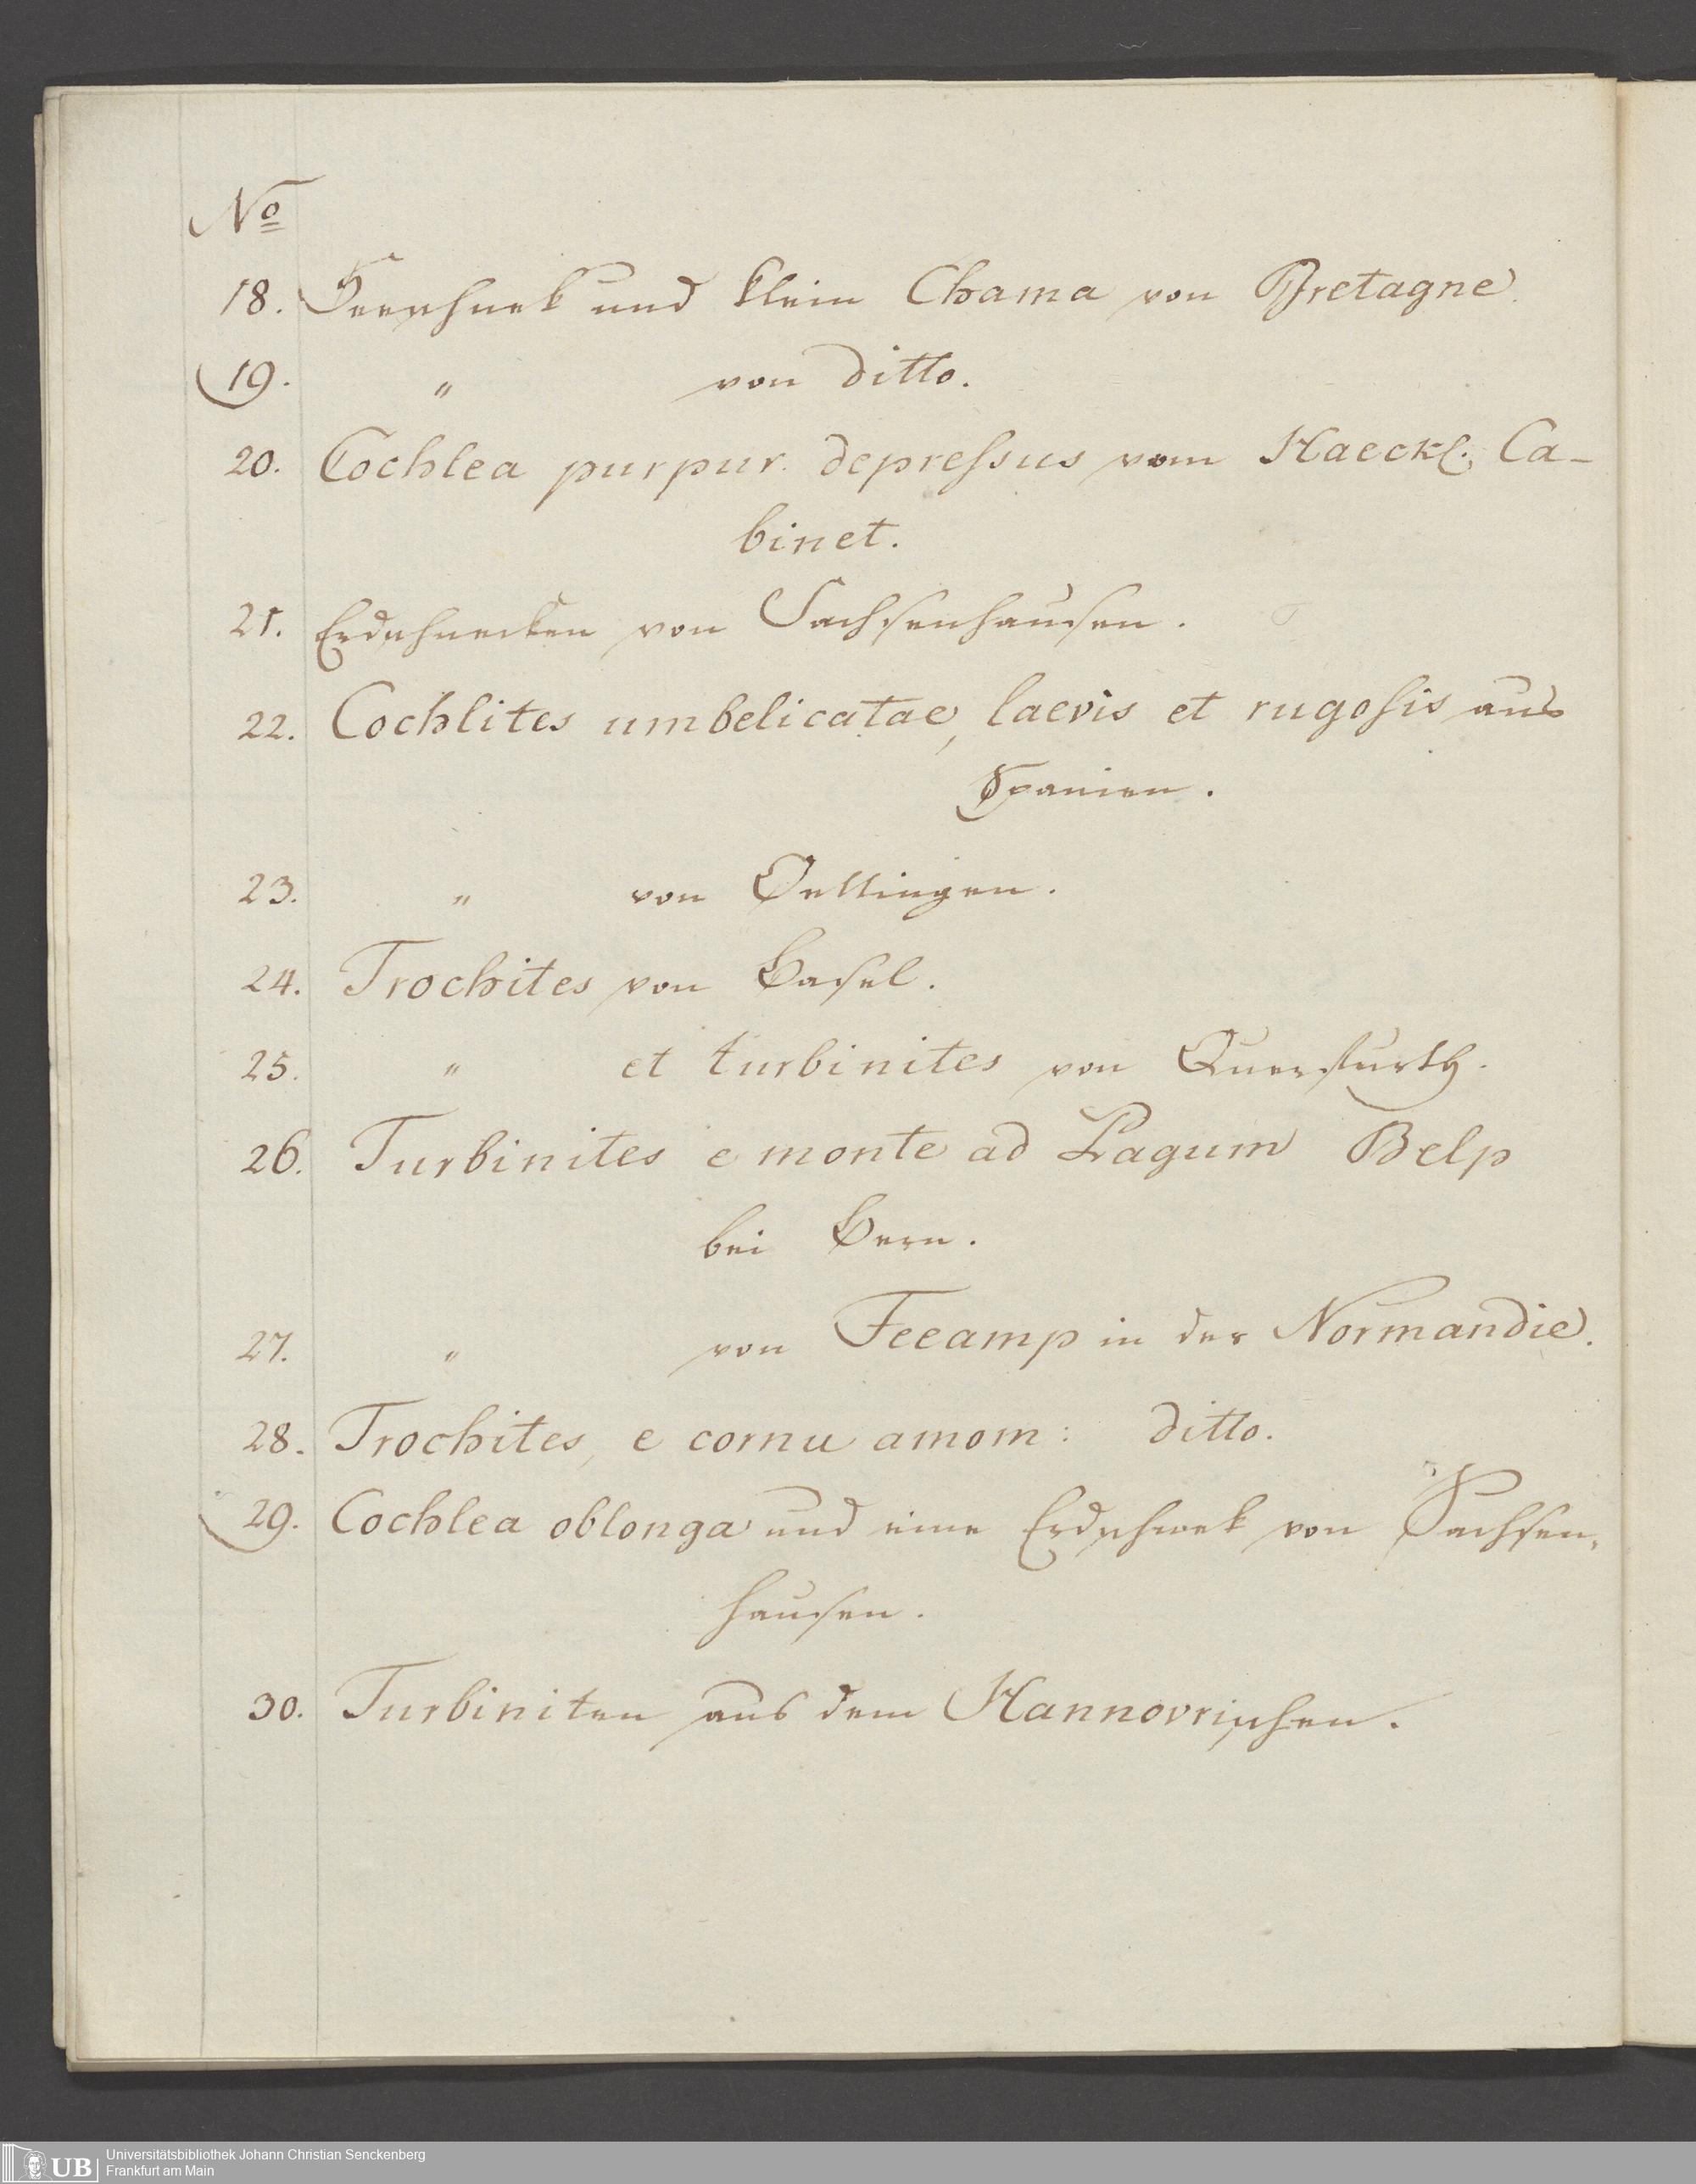 No
18. Seeschnek und klein Chama von Bretagne.
19. " von ditto.
20. Cochlea purpur. depressus vom Haeckl. Ca-
binet.
21. Erdschnecken von Sachsenhausen.
22. Cochlites umbelicatae, laevis et rugosis aus
Spanien.
23. " von Oettingen.
24. Trochites von Basel.
25. " et turbinites von Querfurth.
26. Turbinites e monte ad Pagum Belp
bei Bern.
27. " von Feeamp in der Normandie.
28. Trochites, e cornu amom: ditto.
29. Cochlea oblonga und eine Erdschnek von Sachsen,
hausen.
30. Turbiniten aus dem Hannovrischen.
UB Universitätsbibliothek Johann Christian Senckenberg
Frankfurt am Main